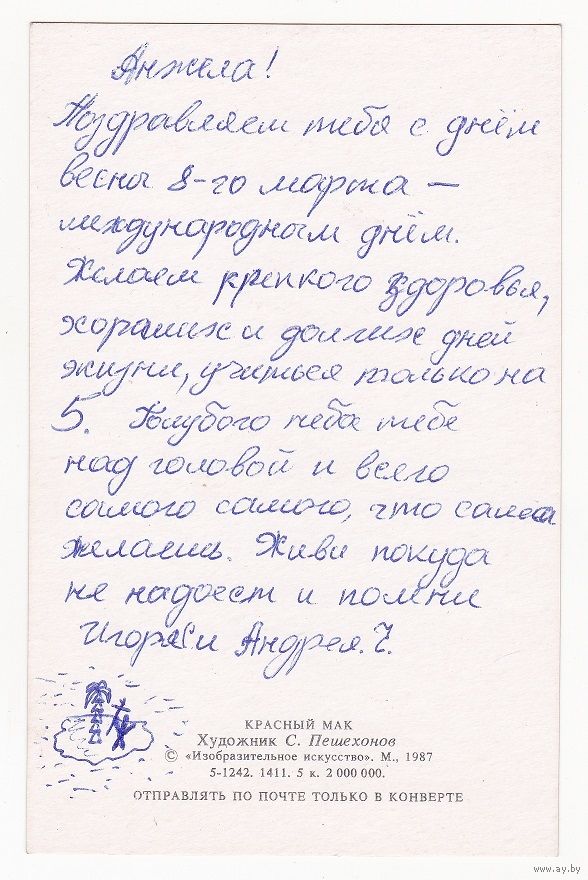 Анжела!
Поздравляем тебя с днём
весны 8-го марта —
международным днём.
Желаем крепкого здоровья,
хороших и долгих дней
жизни, учиться только на
5. Голубого неба тебе
над головой и всего
самого самого, что сама
желаешь. Живи покуда
не надоест и помни
Игоря и Андрея. Ч.
КРАСНЫЙ МАК
Художник С. Пешехонов
© «Изобразительное искусство». М., 1987
5-1242. 1411. 5 к. 2 000 000.
ОТПРАВЛЯТЬ ПО ПОЧТЕ ТОЛЬКО В КОНВЕРТЕ
www.ay.by